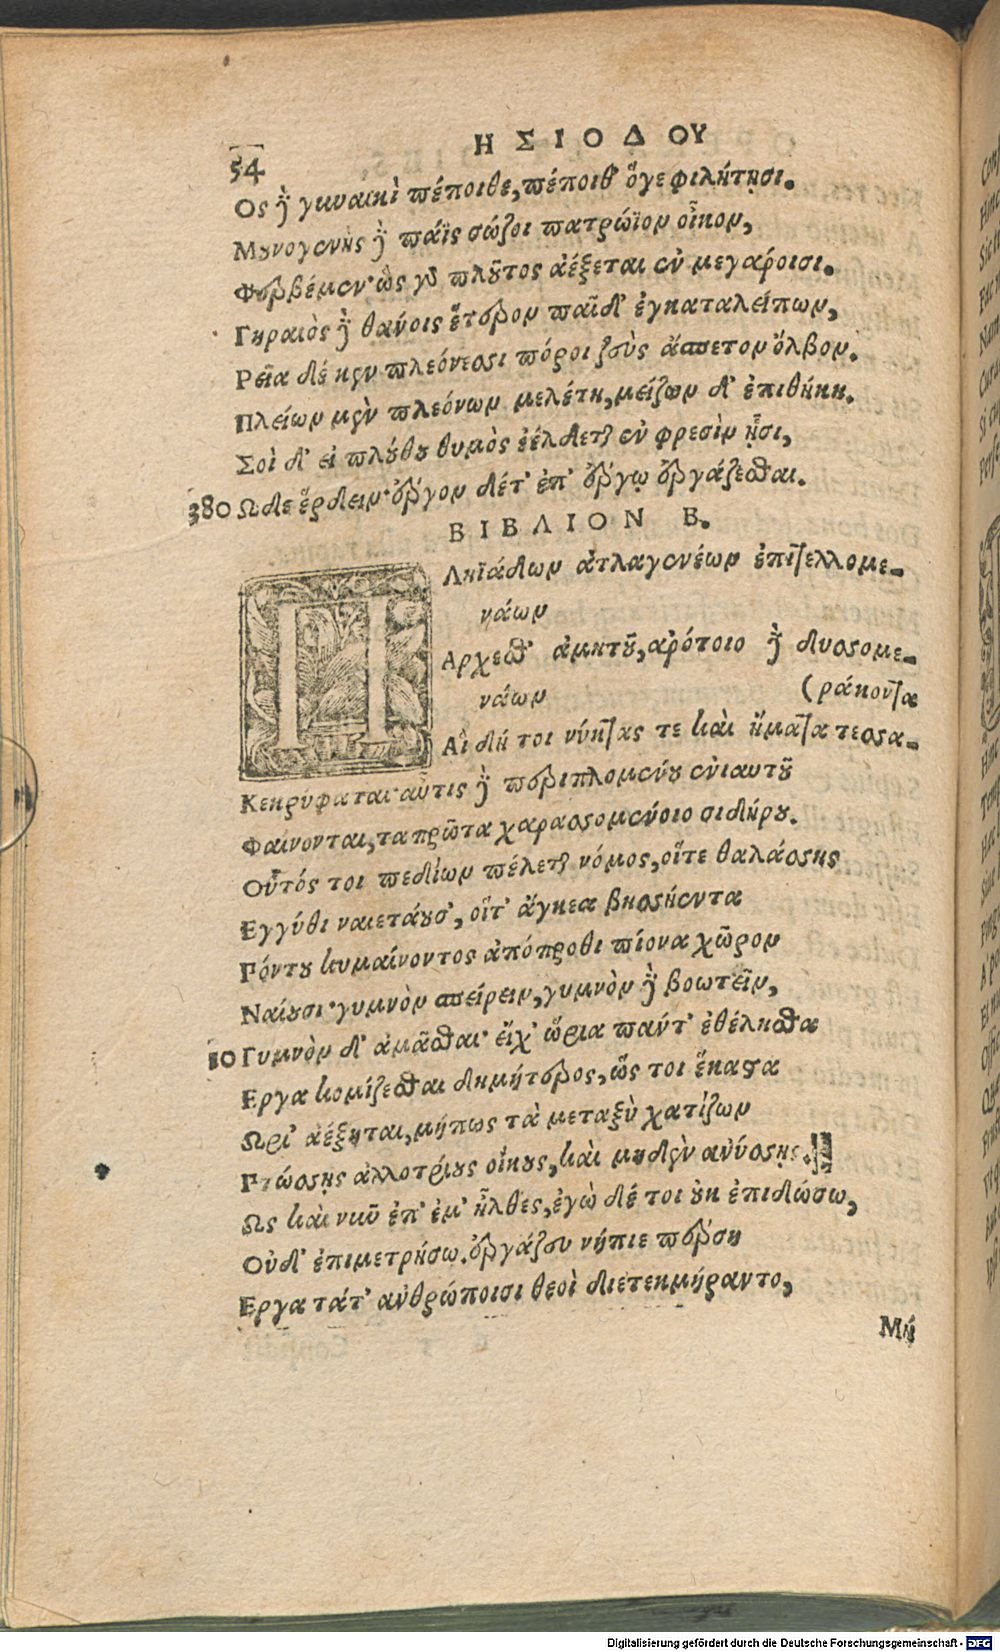 54
ΗΣΙΟΔΟΥ
Ος δὲ γυναικὶ πέποιθε, πέποιθ' ὅγε φιλήτῃσι.
Μουνογενὴς δὲ πάϊς σώζοι πατρώϊον οἶκον,
Φερβέμεν· ὣς γὸ πλοῦτος ἀέξεται ἐν μεγάροισι.
Γηραιὸς δὲ θανοις ἕτερον παῖδ' ἐγκαταλείπων,
Ρεῖα δέ κεν πλεόνεσσι πόροι ζεὺς ἄσπετον ὄλβον.
Πλείων μὲν πλεόνων μελέτη, μείζων δ' ἐπιθήκη.
Σοὶ δ' εἰ πλούτου θυμὸς ἐέλδεται ἐν φρεσὶν ᾗσι,
380 Ωδε ἕρδειν· ἔργον δέτ' ἐπ' ἔργῳ ἐργάζεσθαι.
ΒΙΒΛΙΟΝ Β.
ΠΛηϊάδων ἀτλαγενέων ἐπιτελλομε-
νάων
Αρχεσθ' ἀμητοῦ, ἀρότοιο δὲ δυσσομε-
νάων (ράκοντα
Αἳ δή τοι νύκτας τε καὶ ἤματα τεσσα-
Κεκρύφαται· αὖτις δὲ περιπλομένου ἐνιαυτοῦ
Φαίνονται, ταπρῶτα χαρασσομένοιο σιδήρου.
Οὗτός τοι πεδίων πέλεται νόμος, οἵτε θαλάσσης
Εγγύθι ναιετάουσ', οἵτ' ἄγκεα βησσήεντα
Πόντου κυμαίνοντος ἀπόπροθι πίονα χῶρον
Ναίουσι· γυμνὸν σπείρειν, γυμνὸν δὲ βοωτεῖν,
10 Γυμνὸν δ' ἀμᾶσθαι· εἴχ' ὥρια πάντ' ἐθέλησθα
Εργα κομίζεσθαι δημήτερος, ὥς τοι ἕκαστα
Ωρι' ἀέξηται, μήπως τὰ μεταξὺ χατίζων
Πτώσσῃς ἀλλοτρίους οἴκους, καὶ μηδὲν ἀνύσσῃς.
Ως καὶ νῦν ἐπ' ἐμ' ἦλθες, ἐγὼ δέ τοι οὐκ ἐπιδώσω,
Οὐδ' ἐπιμετρήσω. ἐργάζευ νήπιε πέρση
Εργα τάτ' ἀνθρώποισι θεοὶ διετεκμήραντο,
Μή
Digitalisierung gefördert durch die Deutsche Forschungsgemeinschaft - DFG